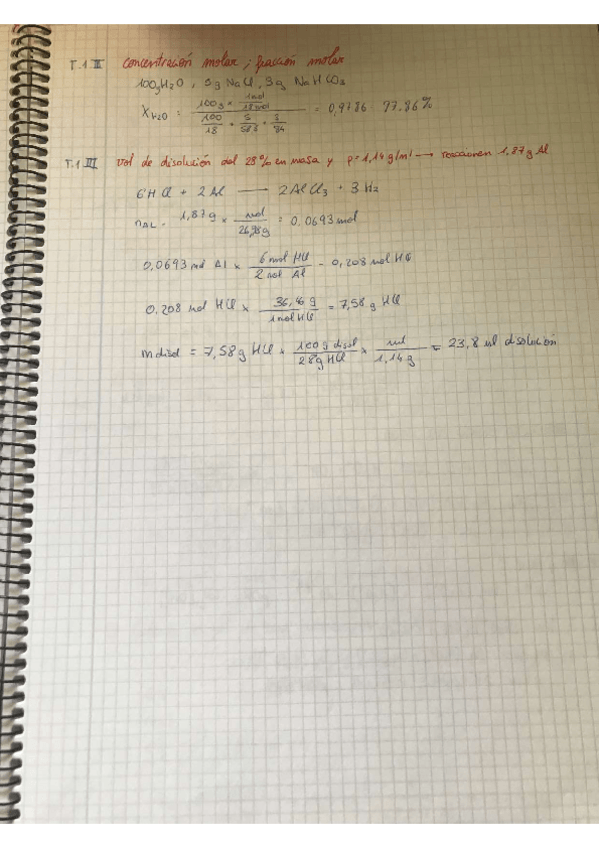 T.1 II concentración molar; fracción molar
100g H2O, 5g NaCl, 3g NaHCO3
X H2O = (100g × 1mol/18mol) / (100/18 + 5/58'5 + 3/84) = 0,9786 97.86%
T.1 III Vol de disolución del 28% en masa y ρ=1,14g/ml → reaccionen 1.87g Al
6HCl + 2Al → 2AlCl3 + 3H2
nAl. 1,87g × mol/26,98g = 0,0693 mol
0,0693 mol Al × 6 mol HCl/2 mol Al = 0,208 mol HCl
0,208 mol HCl × 36,46 g/1 mol HCl = 7,58 g HCl
m disol = 7,58g HCl × 100g disol/28g HCl × ml/1,14g = 23,8 ml disolución